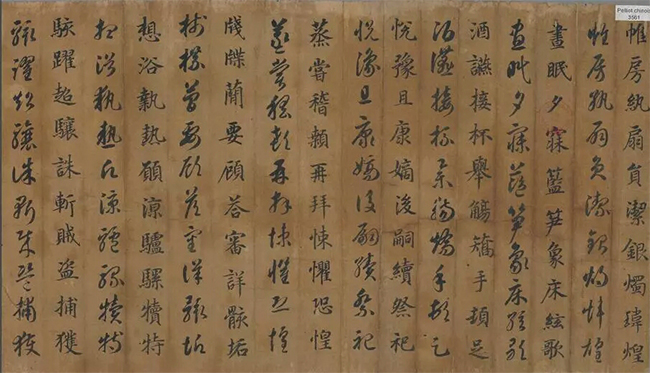 Pelliot chinois
3561
帷房紈扇員潔銀燭瑋煌
帷房紈扇員潔銀燭瑋煌
晝眠夕寐籃笋象床絃歌
晝眠夕寐籃笋象床絃歌
酒讌接杯舉觴矯手頓足
酒讌接杯舉觴矯手頓足
悅豫且康嫡後嗣續祭祀
悅豫且康嫡後嗣續祭祀
蒸嘗稽顙再拜悚懼恐惶
蒸嘗稽顙再拜悚懼恐惶
牋牒簡要顧荅審詳骸垢
牋牒簡要顧荅審詳骸垢
想浴執熱願涼驢騾犢特
想浴執熱願涼驢騾犢特
駭躍超驤誅斬賊盗捕獲
駭躍超驤誅斬賊盗捕獲